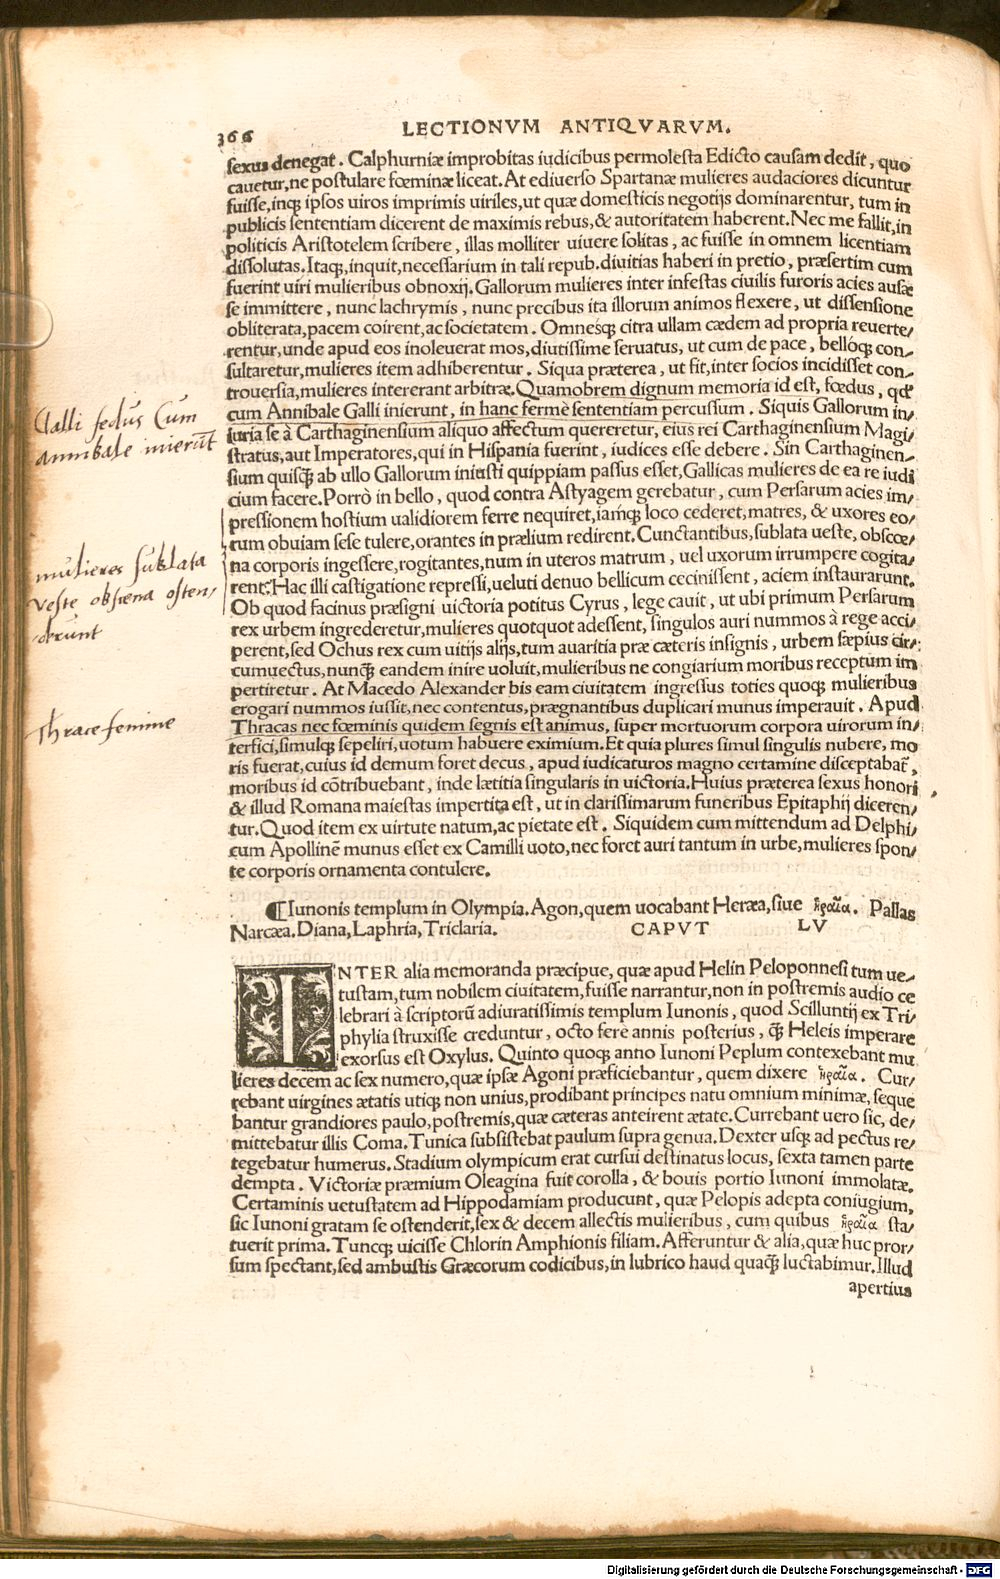 366
LECTIONVM ANTIQVARVM.
sexus denegat. Calphurniæ improbitas iudicibus permolesta Edicto causam dedit, quo
cauetur, ne postulare fœminæ liceat. At ediuerso Spartanæ mulieres audaciores dicuntur
fuisse, inqȝ ipsos uiros imprimis uiriles, ut quæ domesticis negotijs dominarentur, tum in
publicis sententiam dicerent de maximis rebus, & autoritatem haberent. Nec me fallit, in
politicis Aristotelem scribere, illas molliter uiuere solitas, ac fuisse in omnem licentiam
dissolutas. Itaqȝ, inquit, necessarium in tali repub. diuitias haberi in pretio, præsertim cum
fuerint uiri mulieribus obnoxij. Gallorum mulieres inter infestas ciuilis furoris acies ausæ
se immittere, nunc lachrymis, nunc precibus ita illorum animos flexere, ut dissensione
obliterata, pacem coirent, ac societatem. Omnesqȝ citra ullam cædem ad propria reuerte/
rentur, unde apud eos inoleuerat mos, diutissime seruatus, ut cum de pace, bellóqȝ con/
sultaretur, mulieres item adhiberentur. Siqua præterea, ut fit, inter socios incidisset con/
trouersia, mulieres intererant arbitræ. Quamobrem dignum memoria id est, fœdus, qđ
cum Annibale Galli inierunt, in hanc fermè sententiam percussum. Siquis Gallorum in/
iuria se à Carthaginensium aliquo affectum quereretur, eius rei Carthaginensium Magi/
stratus, aut Imperatores, qui in Hispania fuerint, iudices esse debere. Sin Carthaginen/
sium quisq̃ȝ ab ullo Gallorum iniusti quippiam passus esset, Gallicas mulieres de ea re iudi
cium facere. Porrò in bello, quod contra Astyagem gerebatur, cum Persarum acies im/
pressionem hostium ualidiorem ferre nequiret, iamqȝ loco cederet, matres, & uxores eo/
rum obuiam sese tulere, orantes in prælium redirent. Cunctantibus, sublata ueste, obscœ/
na corporis ingessere, rogitantes, num in uteros matrum, uel uxorum irrumpere cogita/
rent. Hac illi castigatione repressi, ueluti denuo bellicum cecinissent, aciem instaurarunt.
Ob quod facinus præsigni uictoria potitus Cyrus, lege cauit, ut ubi primum Persarum
rex urbem ingrederetur, mulieres quotquot adessent, singulos auri nummos à rege acci/
perent, sed Ochus rex cum uitijs alijs, tum auaritia præ cæteris insignis, urbem sæpius cir/
cumuectus, nunqȝ̃ eandem inire uoluit, mulieribus ne congiarium moribus receptum im
pertiretur. At Macedo Alexander bis eam ciuitatem ingressus toties quoqȝ mulieribus
erogari nummos iussit, nec contentus, prægnantibus duplicari munus imperauit. Apud
Thracas nec fœminis quidem segnis est animus, super mortuorum corpora uirorum in/
terfici, simulqȝ sepeliri, uotum habuere eximium. Et quia plures simul singulis nubere, mo
ris fuerat, cuius id demum foret decus, apud iudicaturos magno certamine disceptabat̃,
moribus id cõtribuebant, inde lætitia singularis in uictoria. Huius præterea sexus honori
& illud Romana maiestas impertita est, ut in clarissimarum funeribus Epitaphij diceren/
tur. Quod item ex uirtute natum, ac pietate est. Siquidem cum mittendum ad Delphi/
cum Apollinẽ munus esset ex Camilli uoto, nec foret auri tantum in urbe, mulieres spon/
te corporis ornamenta contulere.
Galli fedus Cum
annibale inierũt
mulieres sublata
veste obscena osten/
derunt
Thrace femine
¶Iunonis templum in Olympia. Agon, quem uocabant Heræa, siue ἡραῖα. Pallas
Narcæa. Diana, Laphria, Triclaria. CAPVT LV
INTER alia memoranda præcipue, quæ apud Helin Peloponnesi tum ue/
tustam, tum nobilem ciuitatem, fuisse narrantur, non in postremis audio ce
lebrari à scriptorũ adiuratissimis templum Iunonis, quod Scilluntij ex Tri/
phylia struxisse creduntur, octo fere annis posterius, qȝ̃ Heleis imperare
exorsus est Oxylus. Quinto quoqȝ anno Iunoni Peplum contexebant mu
lieres decem ac sex numero, quæ ipsæ Agoni præficiebantur, quem dixere ἡραῖα. Cur/
rebant uirgines ætatis utiqȝ non unius, prodibant principes natu omnium minimæ, seque
bantur grandiores paulo, postremis, quæ cæteras anteirent ætate. Currebant uero sic, de/
mittebatur illis Coma. Tunica subsistebat paulum supra genua. Dexter usqȝ ad pectus re/
tegebatur humerus. Stadium olympicum erat cursui destinatus locus, sexta tamen parte
dempta. Victoriæ præmium Oleagina fuit corolla, & bouis portio Iunoni immolatæ.
Certaminis uetustatem ad Hippodamiam producunt, quæ Pelopis adepta coniugium,
sic Iunoni gratam se ostenderit, sex & decem allectis mulieribus, cum quibus ἡραῖα sta/
tuerit prima. Tuncqȝ uicisse Chlorin Amphionis filiam. Afferuntur & alia, quæ huc pror/
sum spectant, sed ambustis Græcorum codicibus, in lubrico haud quaqȝ̃ luctabimur. Illud
apertius
Digitalisierung gefördert durch die Deutsche Forschungsgemeinschaft - DFG